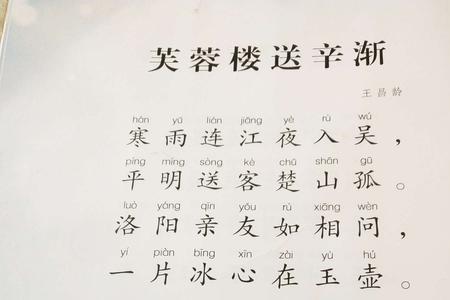 芙蓉楼送辛渐
王昌龄
hán yǔ lián jiāng yè rù wú
寒雨连江夜入吴，
píng míng sòng kè chǔ shān gū
平明送客楚山孤。
luò yáng qīn yǒu rú xiāng wèn
洛阳亲友如相问，
yí piàn bīng xīn zài yù hú
一片冰心在玉壶。